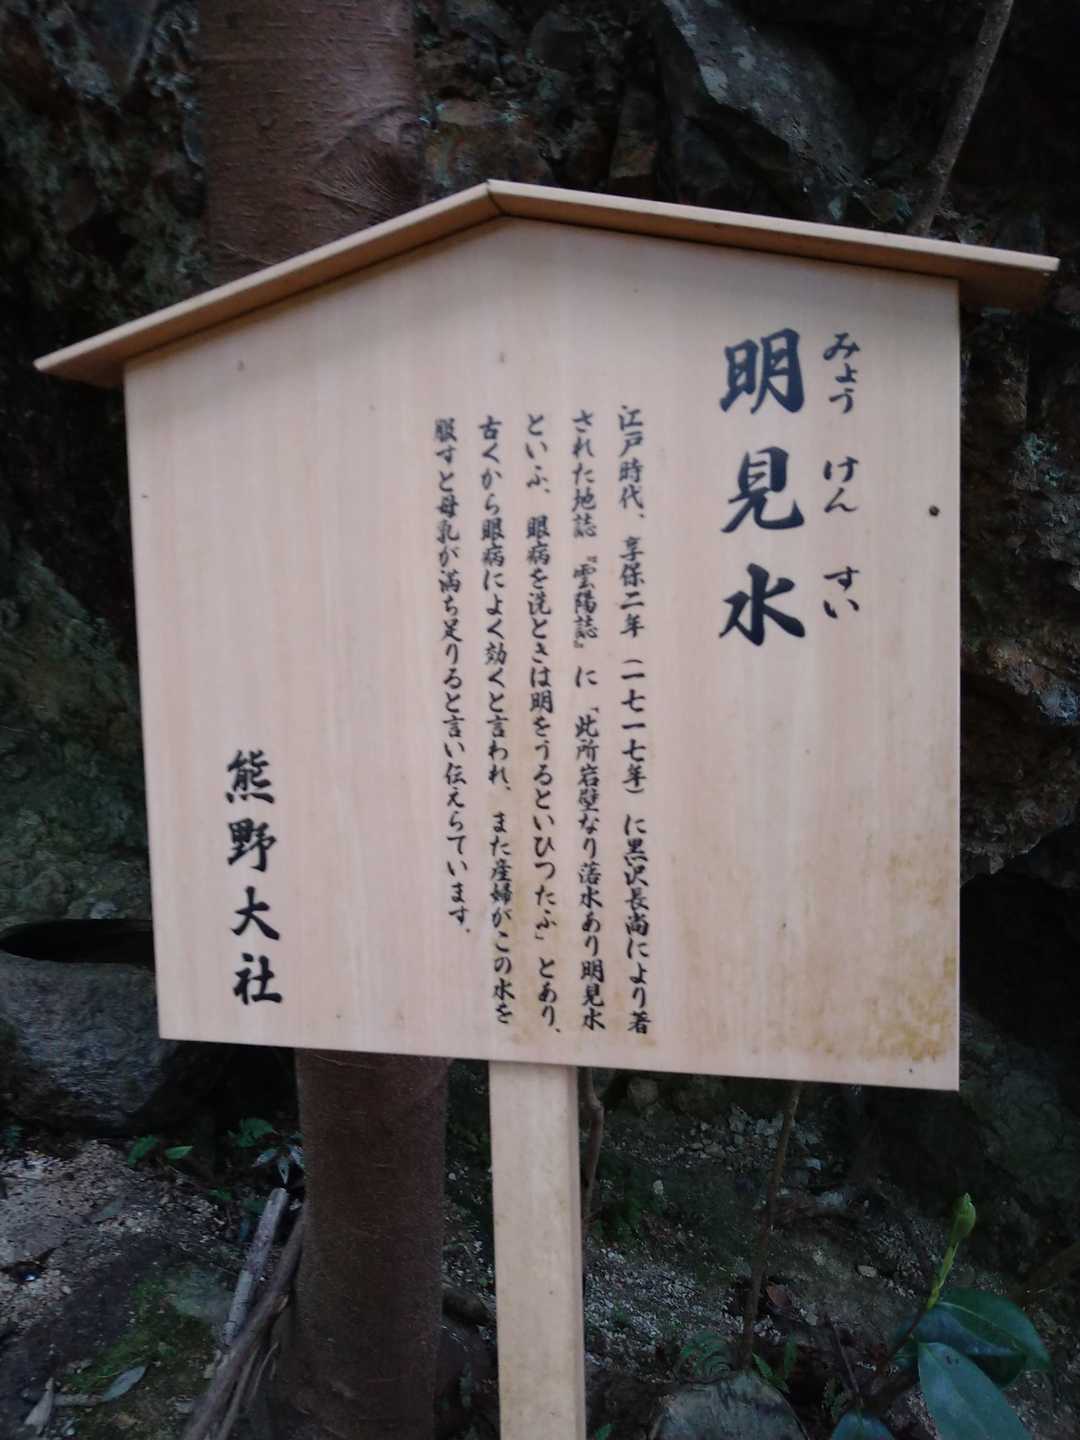 みょうけんすい
明見水
江戸時代、享保二年（一七一七年）に黒沢長尚により著
された地誌『雲陽誌』に「此所岩壁なり落水あり明見水
といふ、眼病を洗ときは明をうるといひつたふ」とあり、
古くから眼病によく効くと言われ、また産婦がこの水を
服すと母乳が満ち足りると言い伝えらています。
熊野大社